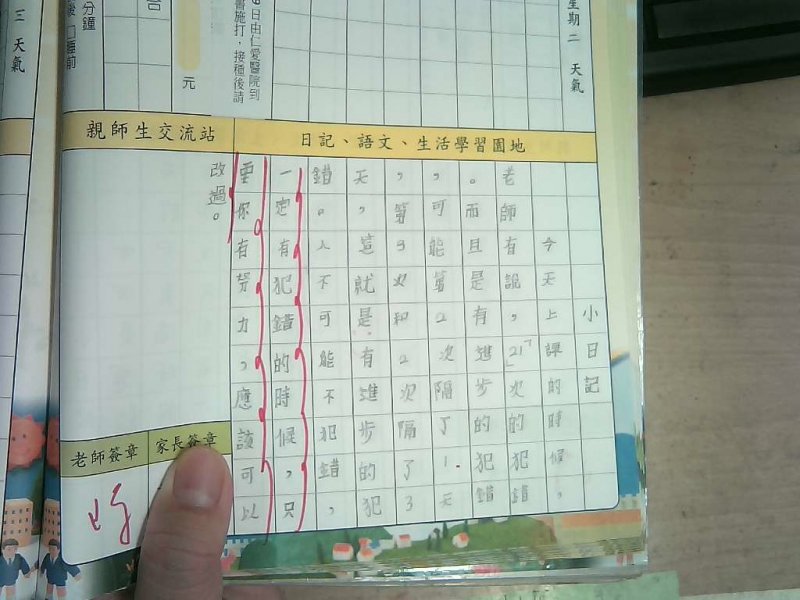 星期二 天氣
日由仁愛醫院到
施打，接種後請
元
分鐘
三 天氣
日記、語文、生活學習園地
親師生交流站
小日記
今天上課的時候，
老師有說，「21」次的犯錯
。而且是有進步的犯錯
，可能第2次隔了1.天
，第3次和2次隔了3
天，這就是有進步的犯
錯。人不可能不犯錯，
一定有犯錯的時候，只
要你有努力，應該可以
改過。
老師簽章
家長簽章